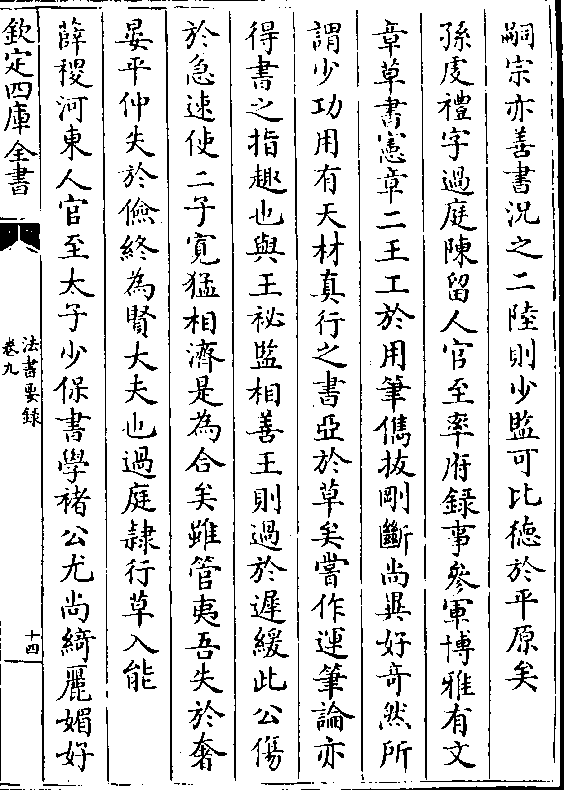 嗣宗亦善書況之二陸則少監可比德於平原矣
孫虔禮字過庭陳留人官至率府録事參軍博雅有文
章草書憲章二王工於用筆儁拔剛斷尚異好竒然所
謂少功用有天材真行之書亞於草矣嘗作運筆論亦
得書之指趣也與王祕監相善王則過於遲緩此公傷
於急速使二子寛猛相濟是為合矣雖管夷吾失於奢
晏平仲失於儉終為賢大夫也過庭隷行草入能
薛稷河東人官至太子少保書學褚公尤尚綺麗媚好
欽定四庫全書
法書要録
卷九
十四